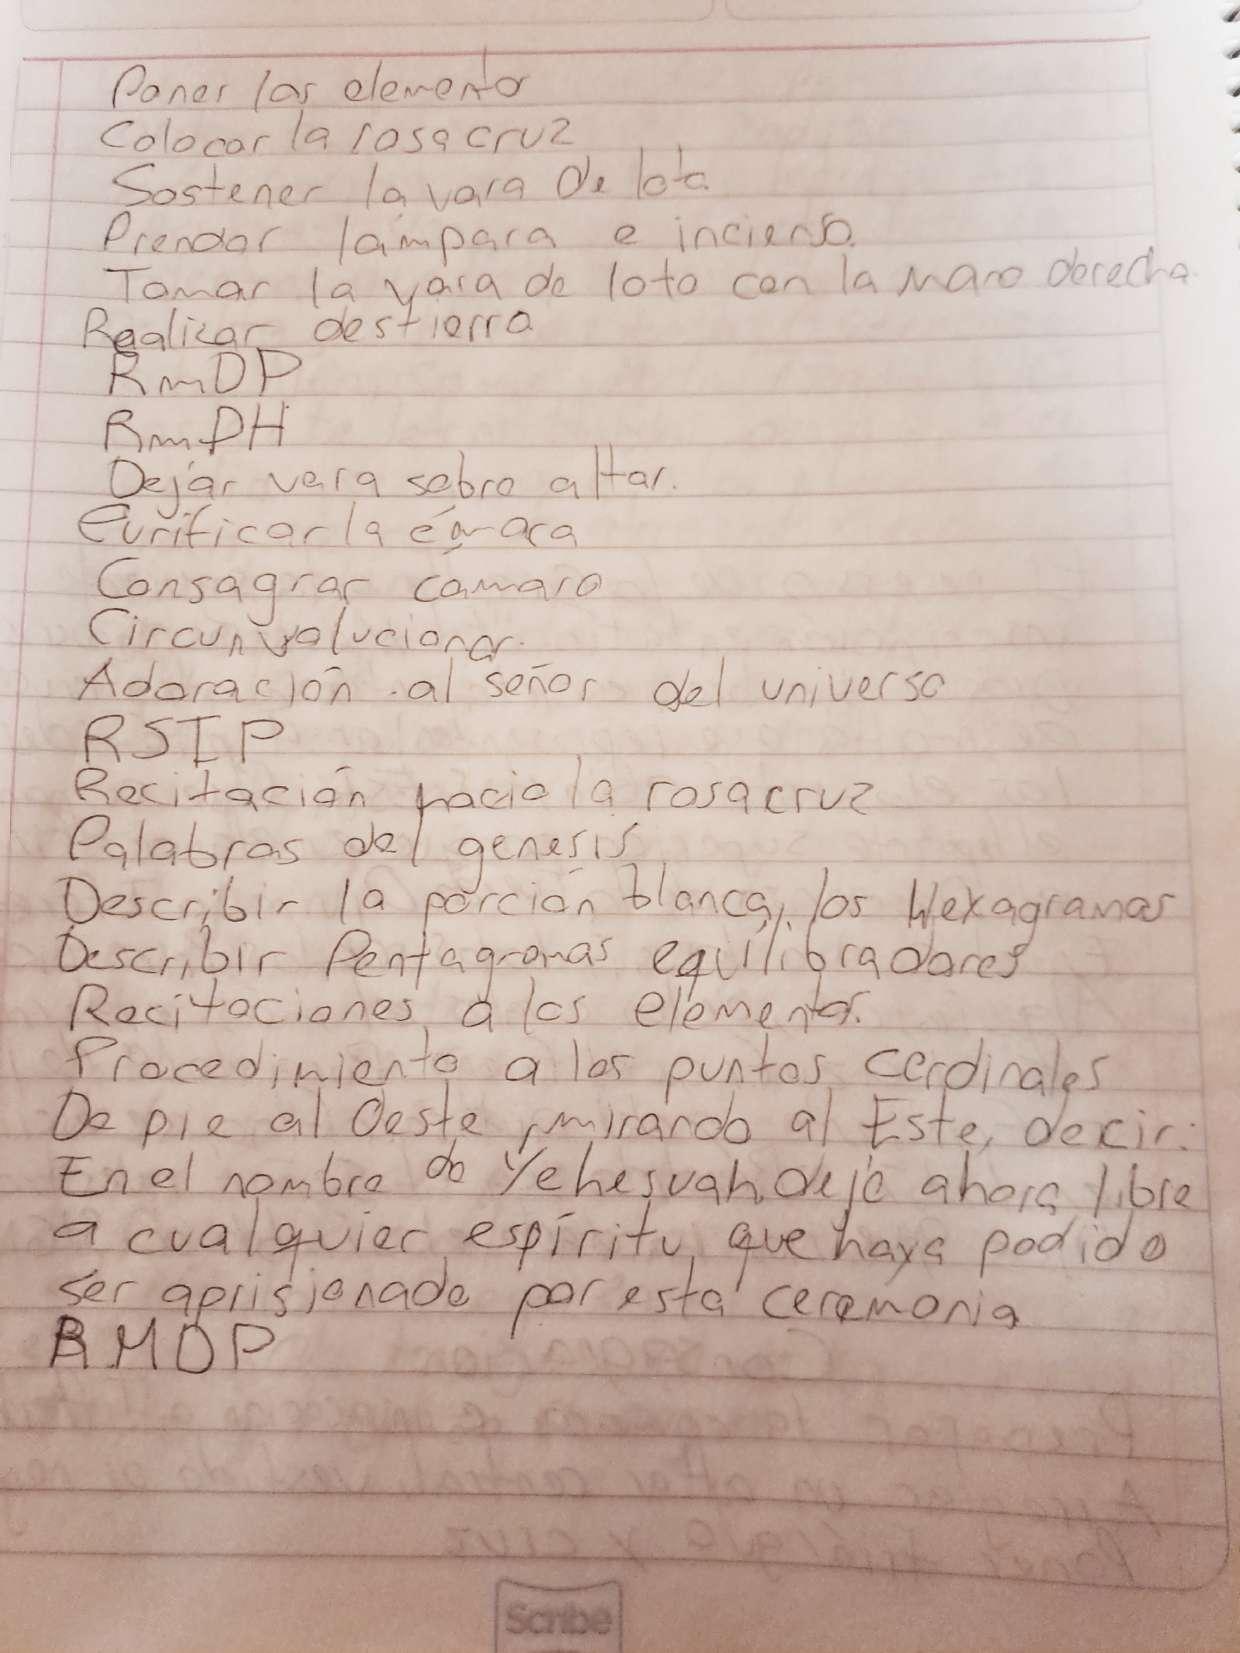 Poner los elemento
Colocar la rosa cruz
Sostener la vara de loto
Prender lámpara e incienso.
Tomar la vara de loto con la mano derecha.
Realizar destierro
RmDP
RmDH
Dejar vara sobre altar.
Purificar la cámara
Consagrar cámara
Circunvalucionar.
Adoración al señor del universo
RSIP
Recitación hacia la rosacruz
Palabras del genesis
Describir la porción blanca, los Hexagramas
Describir Pentagramas equilibradores
Recitaciones a los elementos.
Procedimiento a los puntos cardinales
De pie al Oeste, mirando al Este, decir:
En el nombre de Yehesuah, dejo ahora libre
a cualquier espíritu que haya podido
ser aprisionado por esta ceremonia
RMDP
Scribe